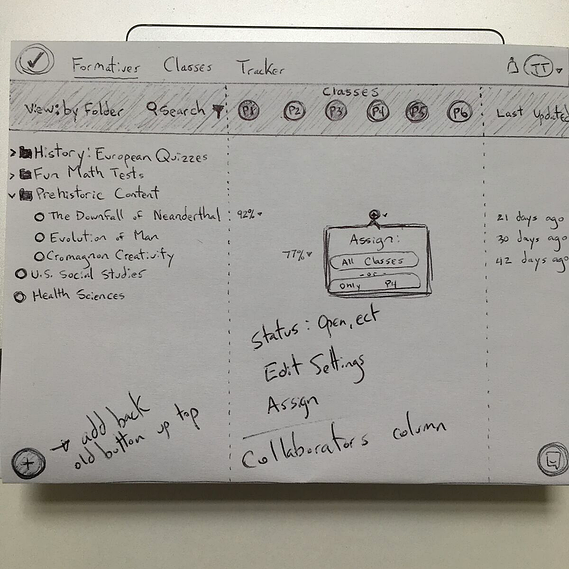 Formatives Classes Tracker JT
Classes
View: by Folder Search P1 P2 P3 P4 P5 P6 Last Updated
History: European Quizzes
Fun Math Tests
Prehistoric Content
The Downfall of Neanderthal : 92% 21 days ago
Assign:
Evolution of Man 77% All Classes 30 days ago
-or-
Cromagnon Creativity Only P4 42 days ago
U.S. Social Studies
Health Sciences
Status: Open, ect
Edit Settings
Assign
→ add back
old button up top
Collaborators column
+